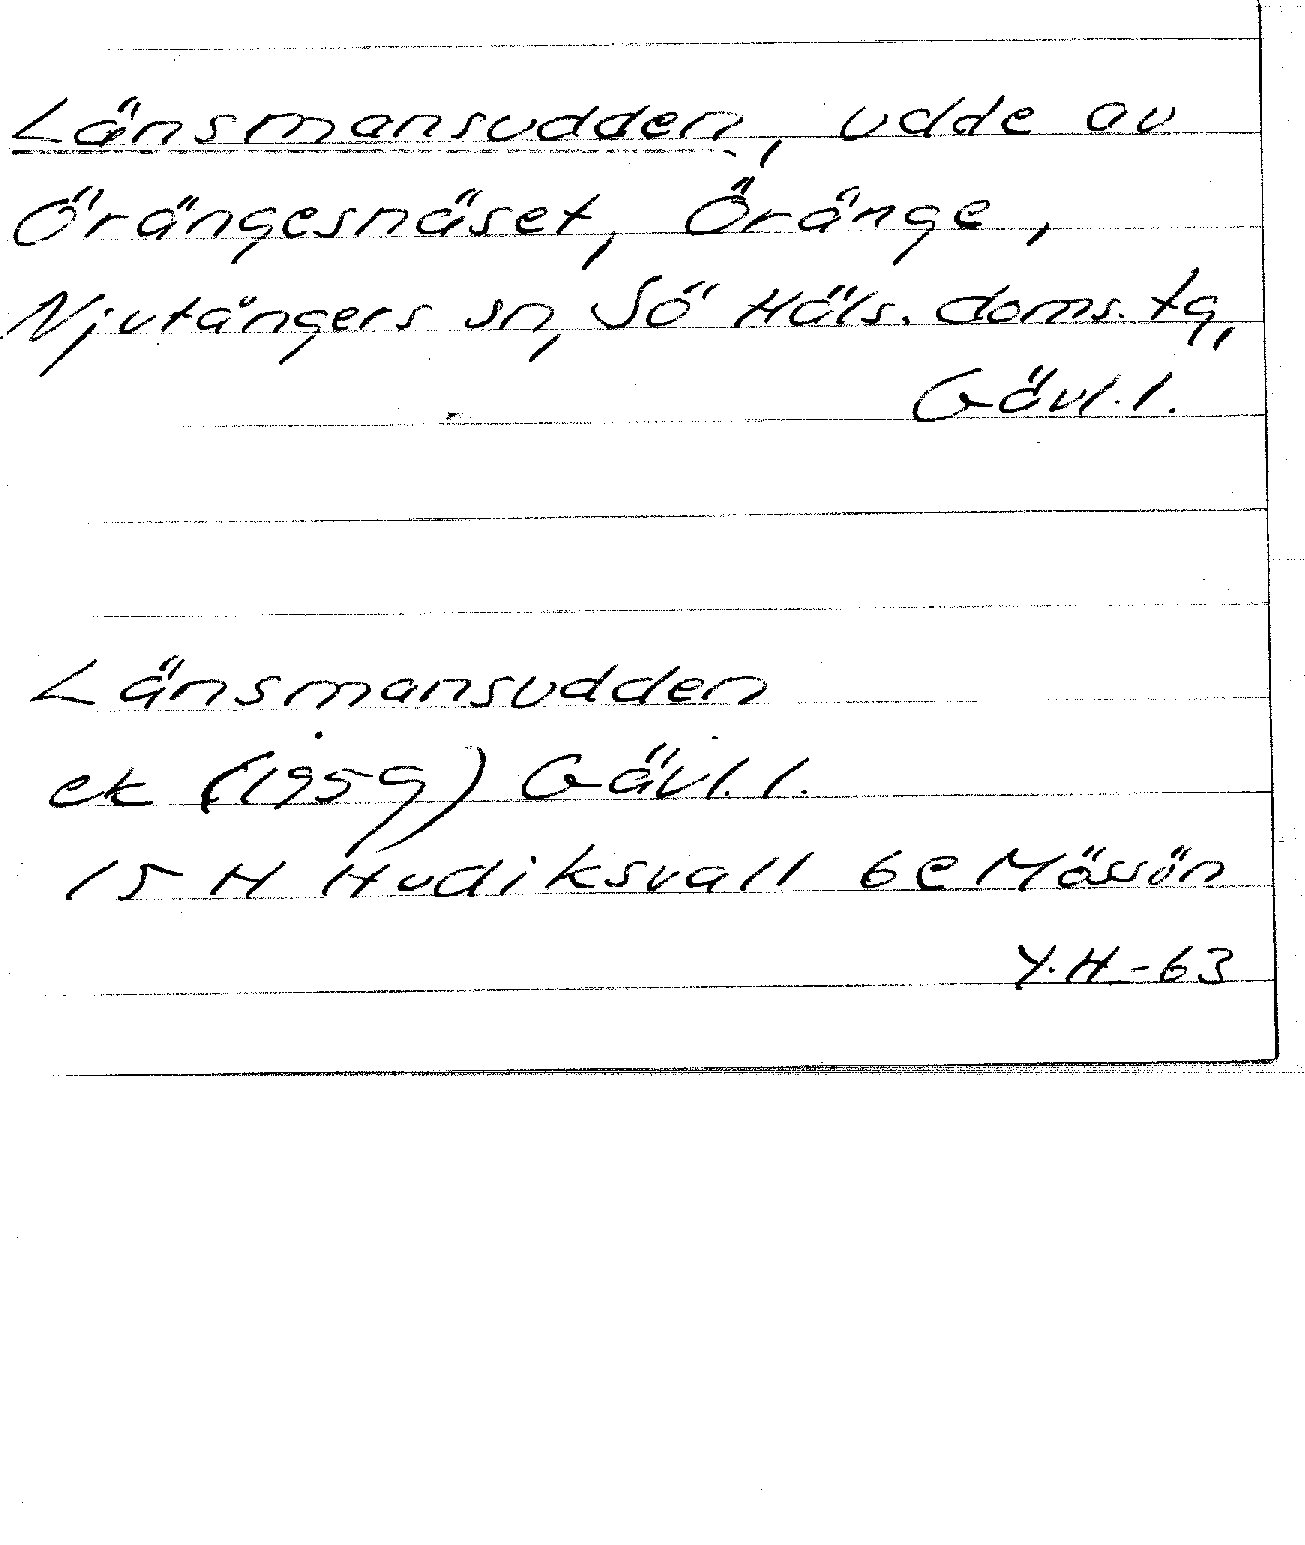 Länsmansudden, udde av
Örängesnäset, Öränge,
Njutångers sn, Sö Häls. doms. tg,
Gävl. l.
Länsmansudden
ek (1959) Gävl. l.
15 H Hudiksvall 6e Mössön
Y.H-63